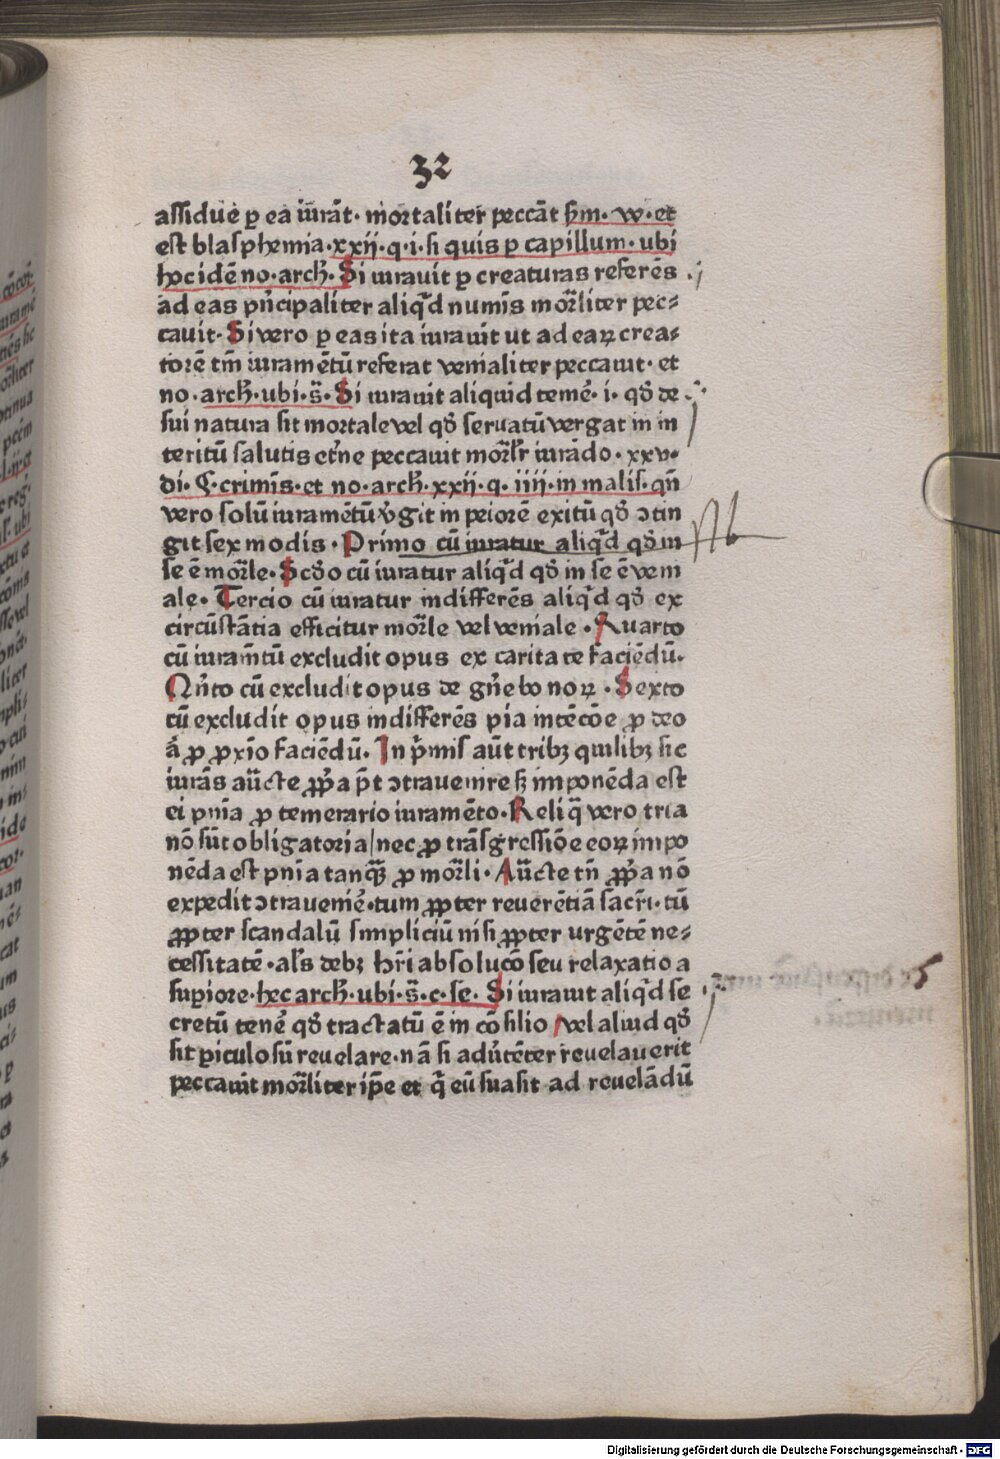 32
assidue ꝑ ea iurāt· mortaliter peccāt ẜm· w· et
est blasphemia·xxij·q·i·si quis ꝑ capillum·ubi
hoc idē no·arch̄· Si iurauit ꝑ creaturas referēs
ad eas pͥncipaliter aliqͥd numīs morͣliter pec⸗
cauit· Si vero ꝑ eas ita iurauit ut ad eaꝝ crea⸗
torē tm̄ iuramētū referat venialiter peccauit· et
no·arch̄·ubi·s̄· Si iurauit aliquid temē·i·qđ de
sui natura sit mortale vel qđ seruatū vergat in in
teritū salutis et̉ne peccauit morͣlr̄ iurādo·xxv·
di·C·crimīs·et no·arch̄·xxij·q·iiij·in malis·qn̄
vero solū iuramētū v̉git in peiorē exitū qđ ↄtin
git sex modis· Primo cū iuratur aliqͥd qđ in
se ē morͣle· Scđo cū iuratur aliqͥd qđ in se ē veni
ale· Tercio cū iuratur indifferēs aliqͥd qđ ex
circūstātia efficitur morͣle vel veniale· Quarto
cū iuram̄tū excludit opus ex caritate faciēdū·
Qn̄to cū excludit opus de gn̄e bonoꝝ· Sexto
cū excludit opus indifferēs pia intēcōe ꝓ deo
ā ꝓ ꝓxīo faciēdū· In pͥmis aūt tribꝫ quilibꝫ sic
iurās au̅cte ꝓpͥa pōt ↄtrauenire sꝫ imponēda est
ei pnīa ꝓ temerario iuramēto· Reliqͣ vero tria
nō sūt obligatoria/nec ꝓ trāsgressiōe eoꝝ impo
nēda est pnīa tanqͣꝫ ꝓ morͣli· Au̅cte tn̄ ꝓpͥa nō
expedit ↄtrauenie̊·tum ꝓpter reuerētiā sacr̄i·tū
ꝓpter scandalū simpliciū nisi ꝓpter urgētē ne⸗
cessitatē·als̄ debꝫ hr̄i absolucō seu relaxatio a
suꝑiore·hec arch̄·ubi·s̄·c·se· Si iurauit aliqͥd se
cretū tene̊ qđ tractatū ē in cōsilio vel aliud qđ
sit ꝑiculosū reuelare·nā si adu̓tēter reuelauerit
peccauit morͣliter ip̄e et qͥ eū suasit ad reuelādū
Nb
Digitalisierung gefördert durch die Deutsche Forschungsgemeinschaft · DFG